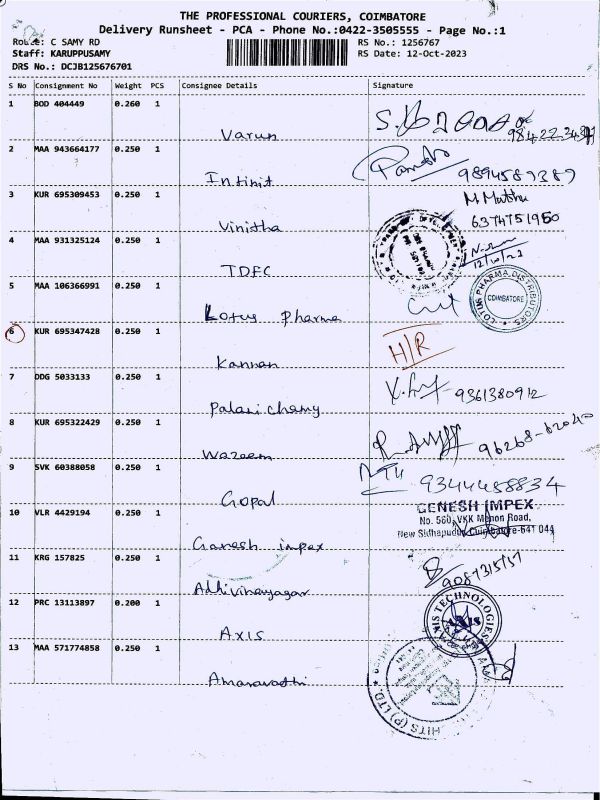 THE PROFESSIONAL COURIERS, COIMBATORE
Delivery Runsheet - PCA - Phone No.:0422-3505555 - Page No.:1
Route: C SAMY RD
RS No.: 1256767
Staff: KARUPPUSAMY
RS Date: 12-Oct-2023
DRS No.: DCJB125676701
S No Consignment No Weight PCS Consignee Details Signature
1 BOD 404449 0.260 1
Varun
2 MAA 943664177 0.250 1
Intimit 9894589389
3 KUR 695309453 0.250 1
Vinitha 6374751950
4 MAA 931325124 0.250 1
TDFC 12/10/23
5 MAA 106366991 0.250 1
Lotus Pharma
LOTUS PHARMA DISTRIBUTORS
COIMBATORE
6 KUR 695347428 0.250 1
Kannan H/R
7 DDG 5033133 0.250 1
Palanichamy 9361380912
8 KUR 695322429 0.250 1
Wazeem 96268-62040
9 SVK 60388058 0.250 1
Gopal 9344488834
10 VLR 4429194 0.250 1
GENESH IMPEX
No. 560, VKK Menon Road,
New Sidhapudur, Coimbatore-641 044
Ganesh impex
11 KRG 157825 0.250 1
Adhivinayagar
12 PRC 13113897 0.200 1
AXIS TECHNOLOGIES
AXIS
Axis
13 MAA 571774858 0.250 1
Amaravathi
HITS (P) LTD.